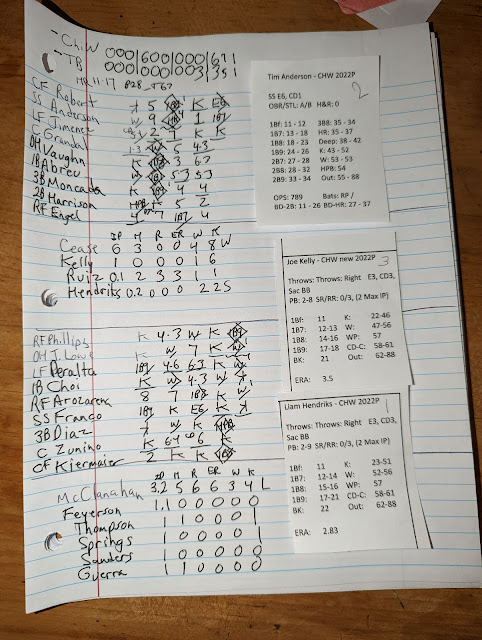 - CHW 000|600|000|6 7 1
- TB 000|000|003|3 5 1
HR 11-17 B2B T67
CF Robert K 5 K E6
SS Anderson W 9 1
LF Jimenez 2 K
C Grandal 1-3 W 5 4-3
DH Vaughn
1B Abreu 3 63
3B Moncada W 53 53
2B Harrison K 4 4
RF Engel K 5 2
4 7 1B7 4
IP H R ER W K
Cease 6 3 0 0 4 8 W
Kelly 1 0 0 0 1 6
Ruiz 0.1 2 3 3 1 1
Hendriks 0.2 0 0 0 2 2 S
RF Phillips K 4-3 W K
DH J. Lowe K W 7 K W
LF Peralta 1B7 4-6 63 K W
1B Choi K W 4-3 W K
RF Arozarena 8 7 1B8 K
SS Franco 1B7 K E6 K
3B Diaz 7 W K
C Zunino K 64 6 K
CF Kiermaier 2 K K K
IP H R ER W K
McClanahan 3.2 5 6 6 3 4 L
Feyerson 1.1 0 0 0 0 0
Thompson 1 1 0 0 0 1
Springs 1 0 0 0 0 1
Sanders 1 0 0 0 0 0
Guerra 1 1 0 0 0 0
Tim Anderson - CHW 2022P
2
SS E6, CD1
OBR/STL: A/B H&R: 0
1Bf: 11 - 12 3B8: 35 - 34
1B7: 13 - 18 HR: 35 - 37
1B8: 18 - 23 Deep: 38 - 42
1B9: 24 - 26 K: 43 - 52
2B7: 27 - 28 W: 53 - 53
2B8: 28 - 32 HPB: 54
2B9: 33 - 34 Out: 55 - 88
OPS: 789 Bats: RP /
BD-2B: 11 - 26 BD-HR: 27 - 37
Joe Kelly - CHW new 2022P 3
Throws: Throws: Right E3, CD3,
Sac BB
PB: 2-8 SR/RR: 0/3, (2 Max IP)
1Bf: 11 K: 22-46
1B7: 12-13 W: 47-56
1B8: 14-16 WP: 57
1B9: 17-18 CD-C: 58-61
BK: 21 Out: 62-88
ERA: 3.5
Liam Hendriks - CHW 2022P 1
Throws: Throws: Right E3, CD3,
Sac BB
PB: 2-9 SR/RR: 0/3, (2 Max IP)
1Bf: 11 K: 23-51
1B7: 12-14 W: 52-56
1B8: 15-16 WP: 57
1B9: 17-21 CD-C: 58-61
BK: 22 Out: 62-88
ERA: 2.83